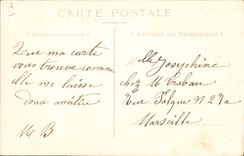 CARTE POSTALE
Correspondance
Adresse du Destinataire
Que ma carte
vous trouve comme
elle me laisse
douce amitié
M B
Melle Josephine
chez M Trabau
Rue Falque N 27a
Marseille